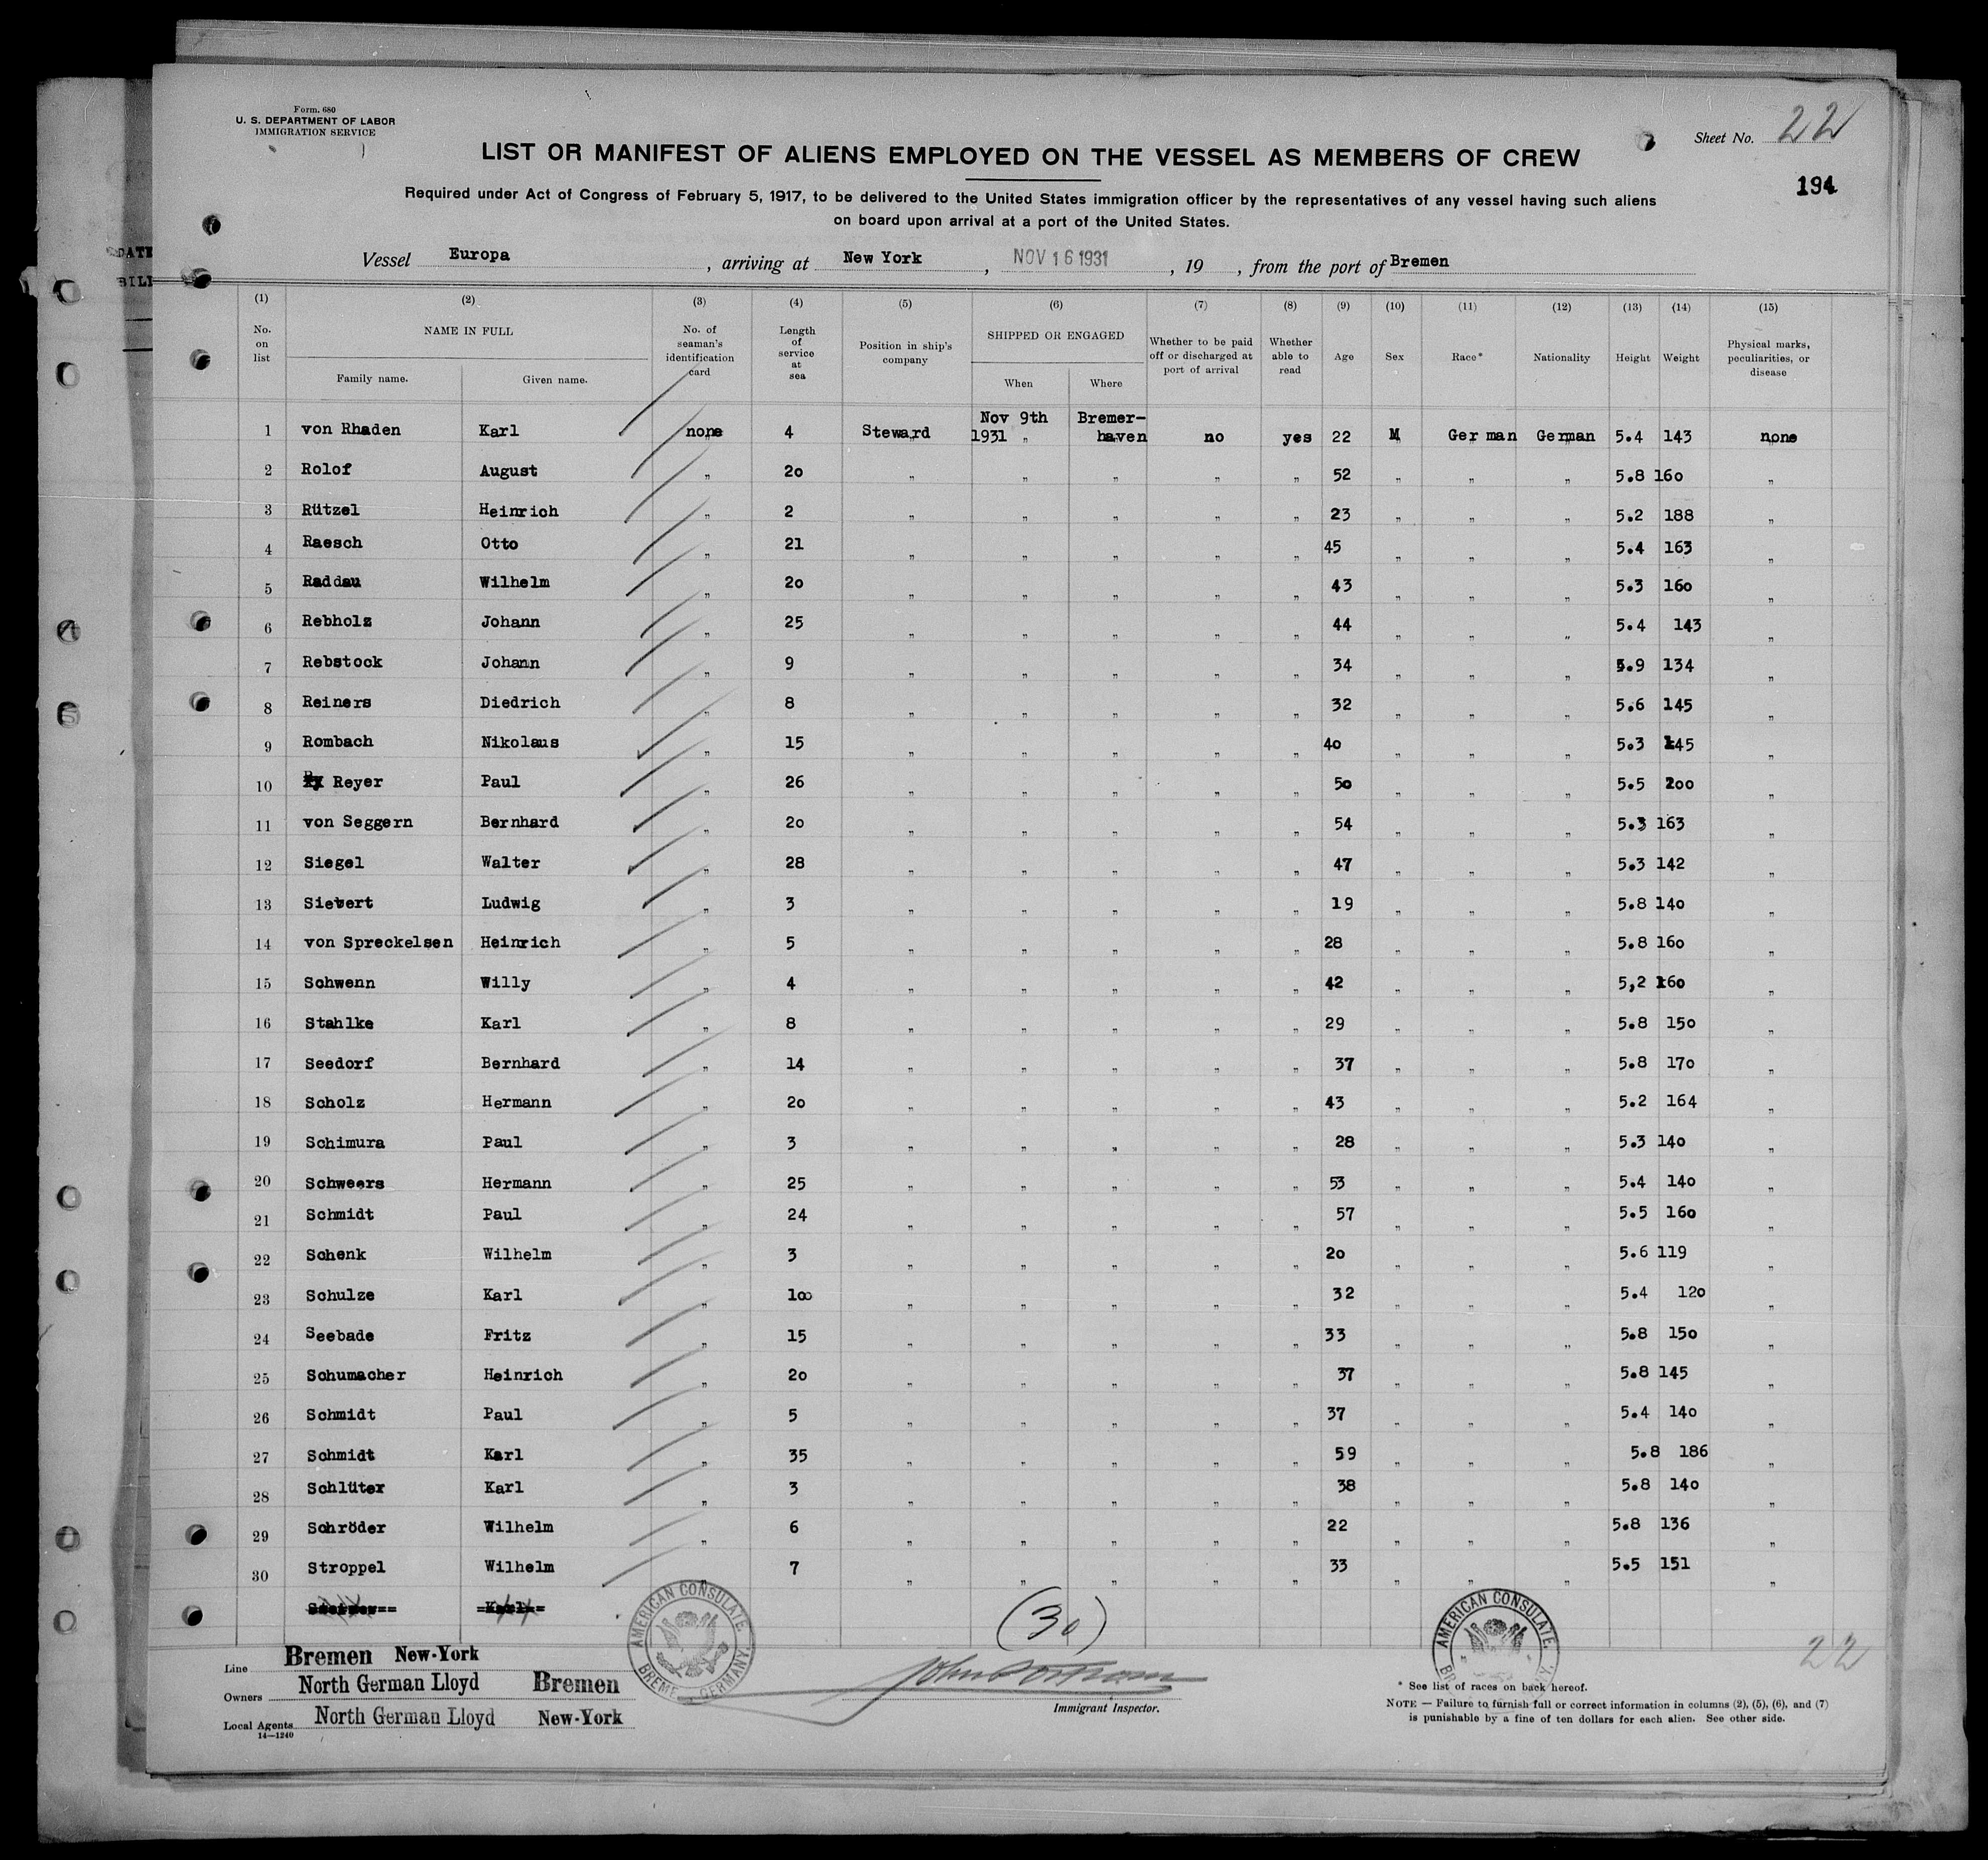 Form. 680
U. S. DEPARTMENT OF LABOR
IMMIGRATION SERVICE
Sheet No. 22
LIST OR MANIFEST OF ALIENS EMPLOYED ON THE VESSEL AS MEMBERS OF CREW
194
Required under Act of Congress of February 5, 1917, to be delivered to the United States immigration officer by the representatives of any vessel having such aliens
on board upon arrival at a port of the United States.
DATE
Vessel Europa , arriving at New York , NOV 16 1931 , 19 , from the port of Bremen
(1) (2) (3) (4) (5) (6) (7) (8) (9) (10) (11) (12) (13) (14) (15)
No. on list NAME IN FULL Family name. Given name. No. of seaman's identification card Length of service at sea Position in ship's company SHIPPED OR ENGAGED When Where Whether to be paid off or discharged at port of arrival Whether able to read Age Sex Race* Nationality Height Weight Physical marks, peculiarities, or disease
1 von Rhaden Karl none 4 Steward Nov 9th 1931 " Bremer-haven no yes 22 M German German 5.4 143 none
2 Rolof August " 20 " " " " " 52 " " " 5.8 160 "
3 Rützel Heinrich " 2 " " " " " 23 " " " 5.2 188 "
4 Raesch Otto " 21 " " " " " 45 " " " 5.4 163 "
5 Raddau Wilhelm " 20 " " " " " 43 " " " 5.3 160 "
6 Rebholz Johann " 25 " " " " " 44 " " " 5.4 143 "
7 Rebstock Johann " 9 " " " " " 34 " " " 5.9 134 "
8 Reiners Diedrich " 8 " " " " " 32 " " " 5.6 145 "
9 Rombach Nikolaus " 15 " " " " " 40 " " " 5.3 145 "
10 Reyer Paul " 26 " " " " " 50 " " " 5.5 200 "
11 von Seggern Bernhard " 20 " " " " " 54 " " " 5.3 163 "
12 Siegel Walter " 28 " " " " " 47 " " " 5.3 142 "
13 Sievert Ludwig " 3 " " " " " 19 " " " 5.8 140 "
14 von Spreckelsen Heinrich " 5 " " " " " 28 " " " 5.8 160 "
15 Schwenn Willy " 4 " " " " " 42 " " " 5,2 160 "
16 Stahlke Karl " 8 " " " " " 29 " " " 5.8 150 "
17 Seedorf Bernhard " 14 " " " " " 37 " " " 5.8 170 "
18 Scholz Hermann " 20 " " " " " 43 " " " 5.2 164 "
19 Schimura Paul " 3 " " " " " 28 " " " 5.3 140 "
20 Schweers Hermann " 25 " " " " " 53 " " " 5.4 140 "
21 Schmidt Paul " 24 " " " " " 57 " " " 5.5 160 "
22 Schenk Wilhelm " 3 " " " " " 20 " " " 5.6 119 "
23 Schulze Karl " 100 " " " " " 32 " " " 5.4 120 "
24 Seebade Fritz " 15 " " " " " 33 " " " 5.8 150 "
25 Schumacher Heinrich " 20 " " " " " 37 " " " 5.8 145 "
26 Schmidt Paul " 5 " " " " " 37 " " " 5.4 140 "
27 Schmidt Karl " 35 " " " " " 59 " " " 5.8 186 "
28 Schlüter Karl " 3 " " " " " 38 " " " 5.8 140 "
29 Schröder Wilhelm " 6 " " " " " 22 " " " 5.8 136 "
30 Stroppel Wilhelm " 7 " " " " " 33 " " " 5.5 151 "
Karl
(30)
AMERICAN CONSULATE. BREMEN, GERMANY.
AMERICAN CONSULATE.
22
Line Bremen New-York
Owners North German Lloyd Bremen
Local Agents North German Lloyd New-York
14—1240
Immigrant Inspector.
* See list of races on back hereof.
NOTE — Failure to furnish full or correct information in columns (2), (5), (6), and (7)
is punishable by a fine of ten dollars for each alien. See other side.